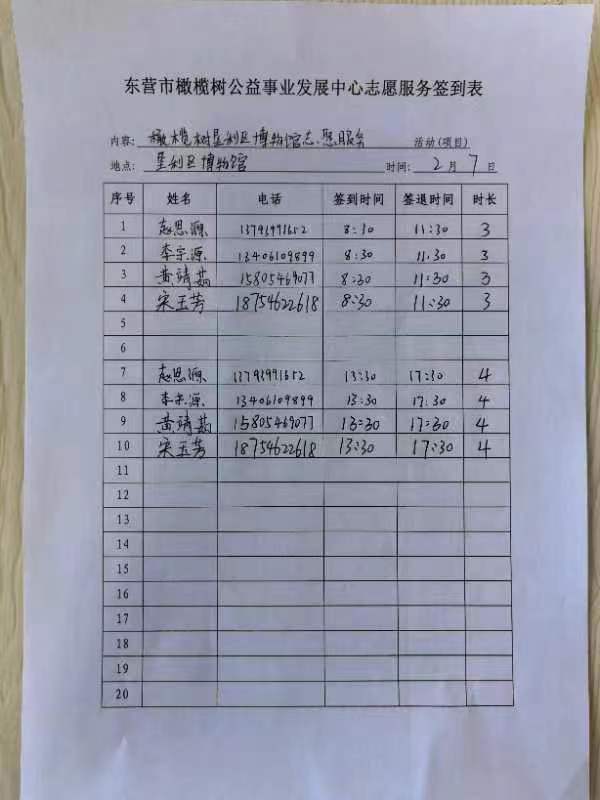 东营市橄榄树公益事业发展中心志愿服务签到表
内容: 橄榄树垦利区博物馆志愿服务 活动(项目)
地点: 垦利区博物馆 时间: 2 月 7 日
序号 姓名 电话 签到时间 签退时间 时长
1 赵思源 13793991652 8:30 11:30 3
2 李宗源 13406109899 8:30 11:30 3
3 黄靖茹 15805469077 8:30 11:30 3
4 宋玉芳 18754622618 8:30 11:30 3
5
6
7 赵思源 13793991652 13:30 17:30 4
8 李宗源 13406109899 13:30 17:30 4
9 黄靖茹 15805469077 13:30 17:30 4
10 宋玉芳 18754622618 13:30 17:30 4
11
12
13
14
15
16
17
18
19
20